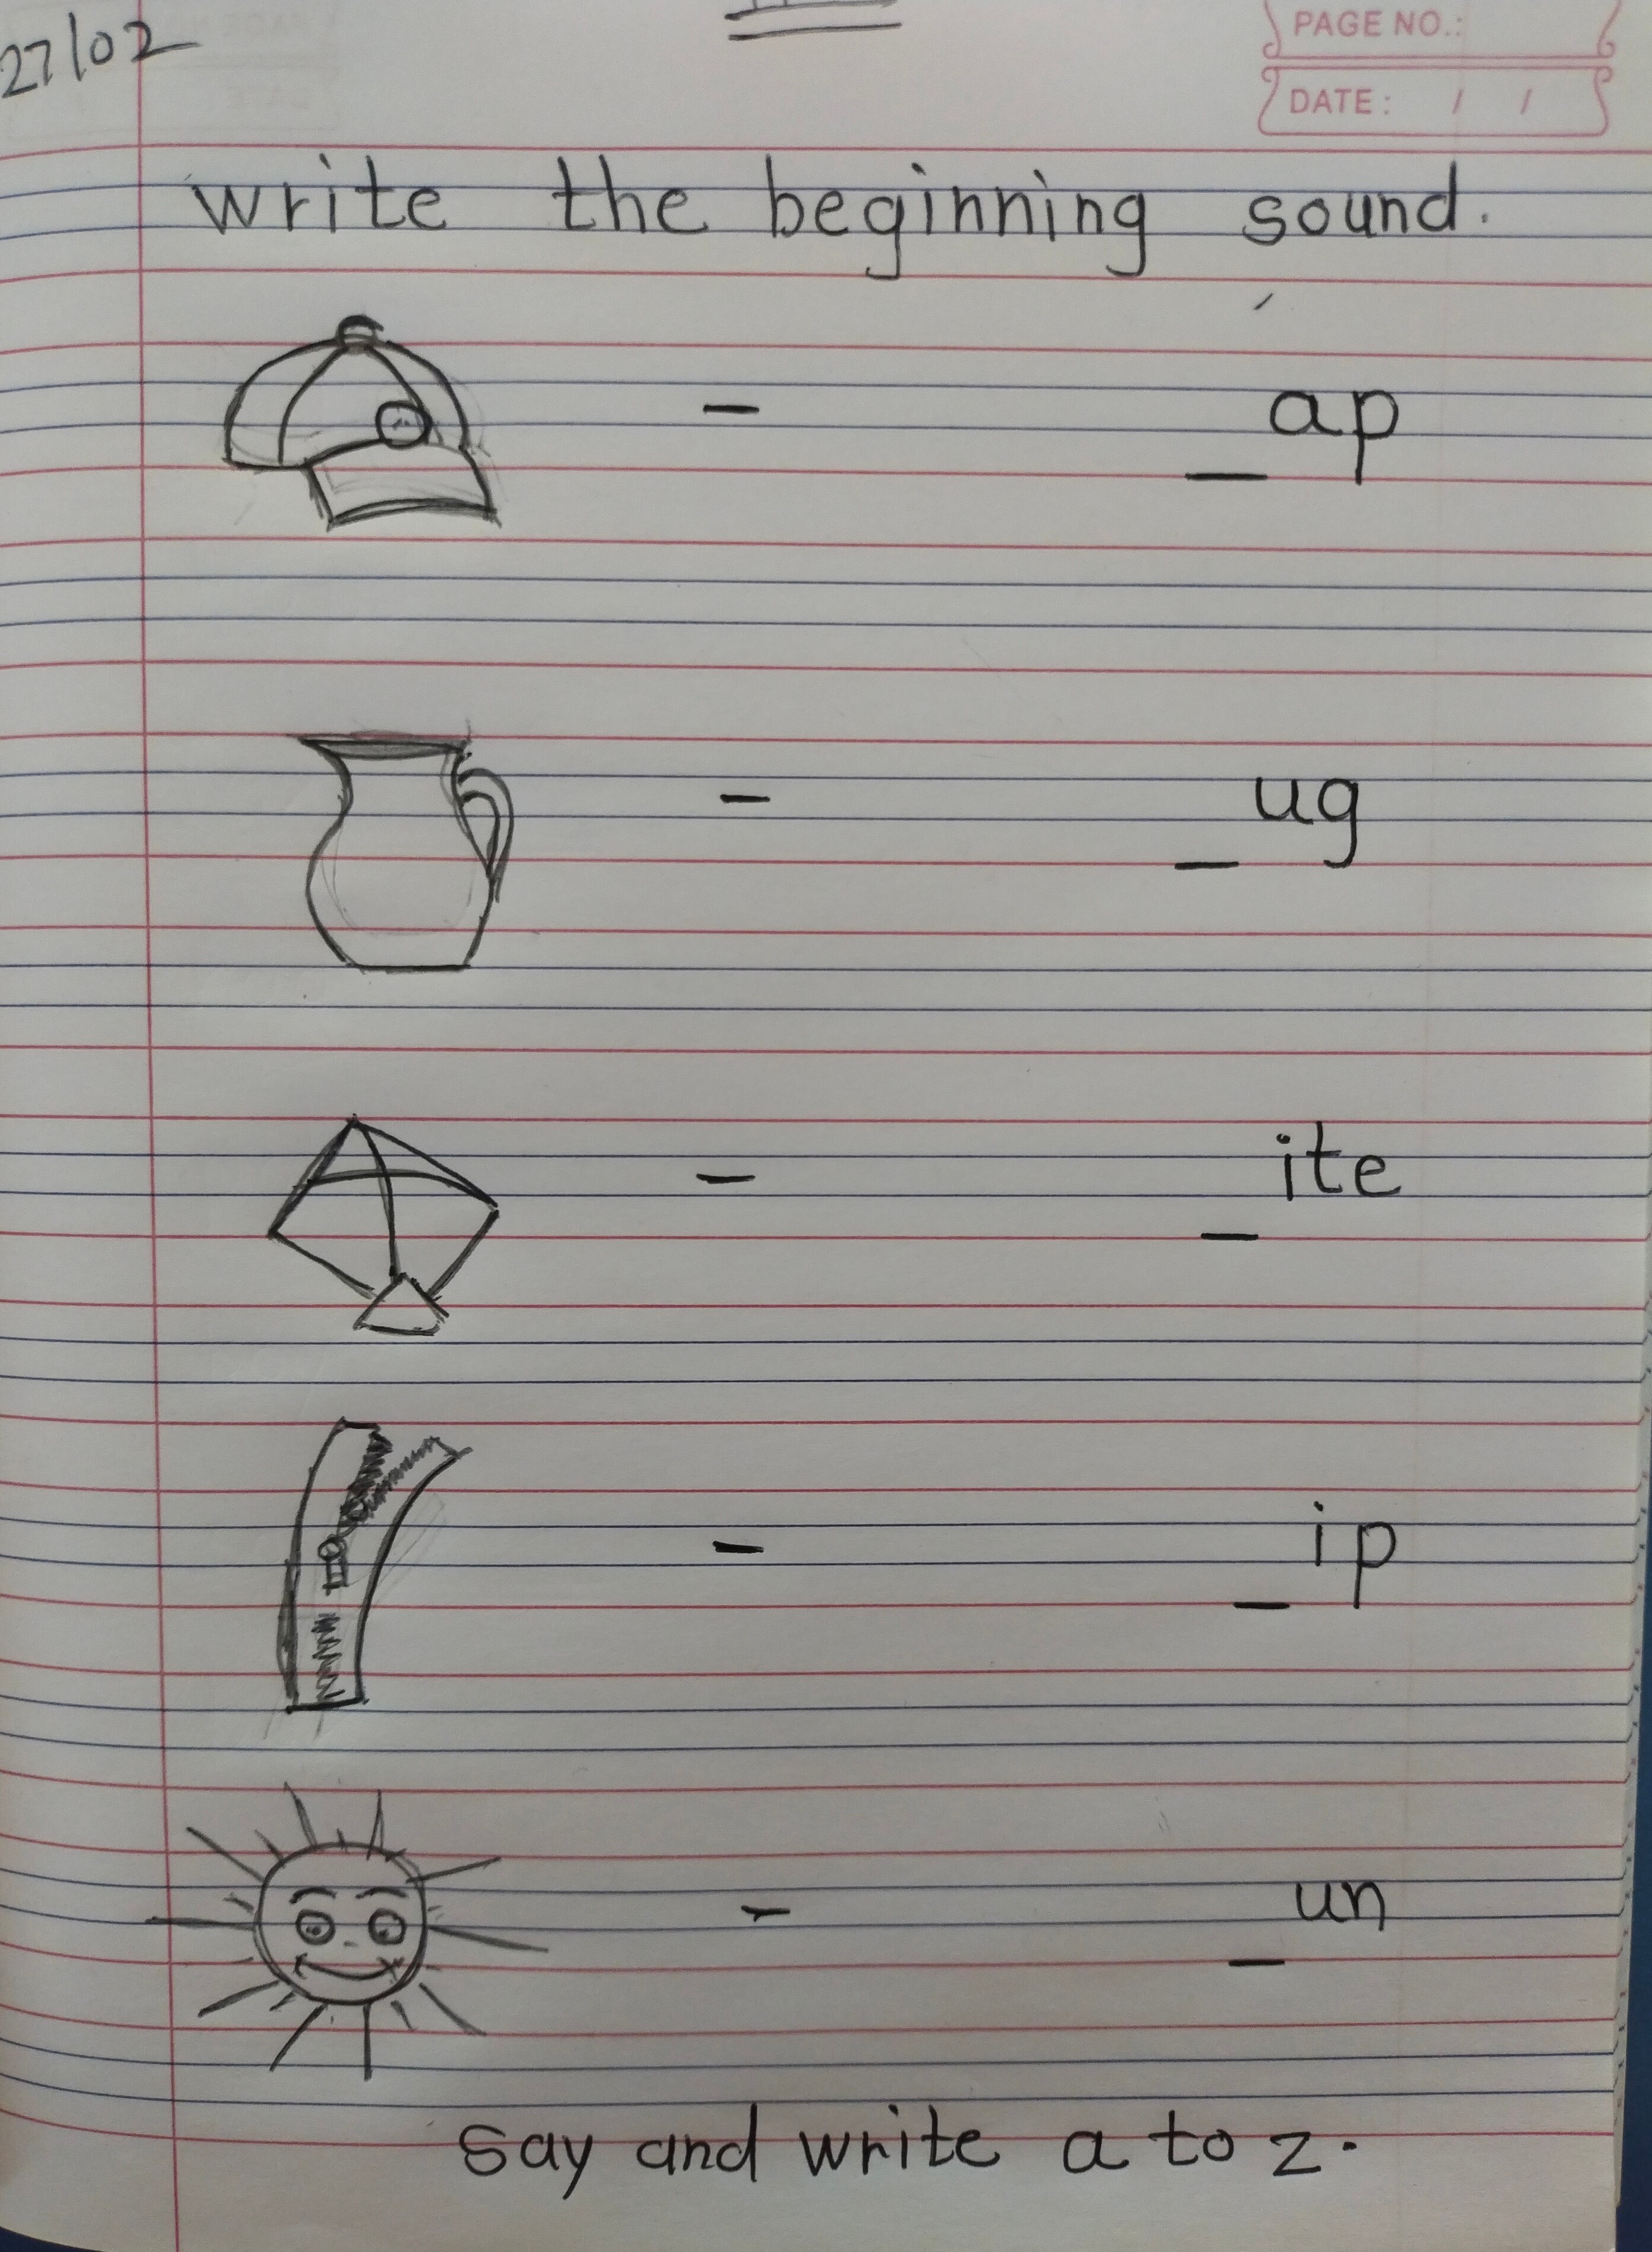 27/02
PAGE NO.:
DATE: / /
write the beginning sound.
- _ap
- _ug
- _ite
- _ip
- _un
say and write a to z.